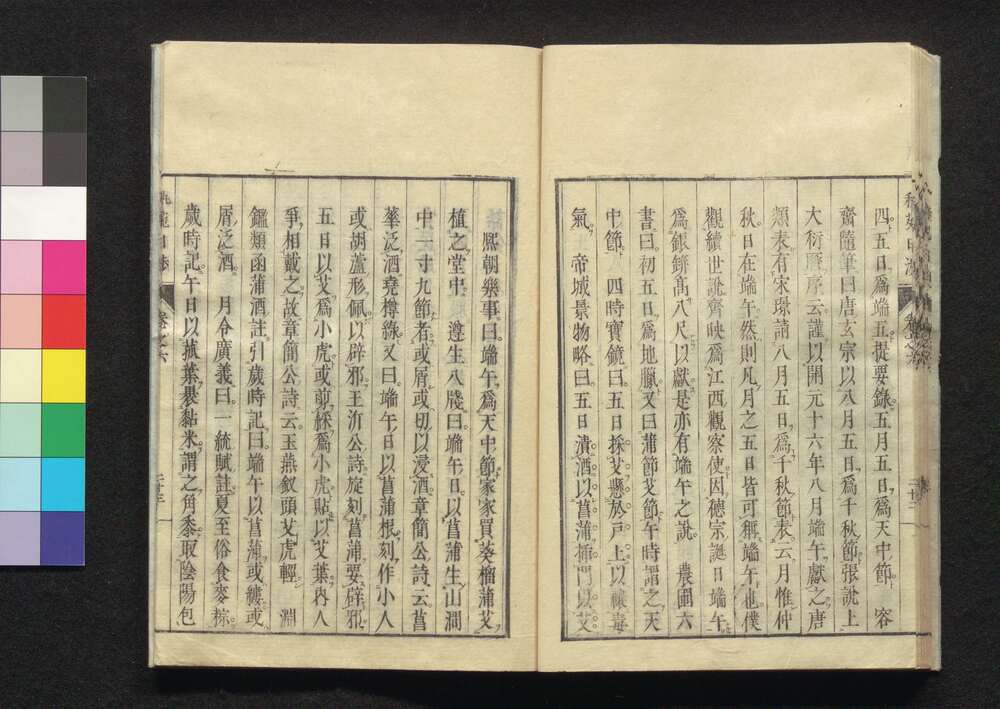 四五日爲端五提要錄五月五日爲天中節　容
齋隨筆曰唐玄宗以八月五日爲千秋節張說上
大衍曆序云謹以開元十六年八月端午獻之唐
類表有宋璟請八月五日爲千秋節表云月惟仲
秋日在端午然則凡月之五日皆可稱端午也僕
觀續世說齊映爲江西觀察使因德宗誕日端午
爲銀缾高八尺以獻是亦有端午之說　農圃六
書曰初五日爲地臘又曰蒲節艾節午時謂之天
中節　四時寶鏡曰五日採艾懸於戸上以禳毒
氣　帝城景物略曰五日漬酒以菖蒲插門以艾
熙朝樂事曰端午爲天中節家家買葵榴蒲艾
植之堂中　遵生八牋曰端午日以菖蒲生山澗
中一寸九節者或屑或切以浸酒章簡公詩云菖
華泛酒堯樽綠又曰端午日以菖蒲根刻作小人
或胡蘆形佩以辟邪王沂公詩旋刻菖蒲要辟邪
五日以艾爲小虎或剪綵爲小虎貼以艾葉內人
爭相戴之故章簡公詩云玉燕釵頭艾虎輕　淵
鑑類函蒲酒註引歲時記曰端午以菖蒲或縷或
屑泛酒　月令廣義曰一統賦註夏至俗食麥粽
歲時記午日以菰葉裹黏米謂之角黍取陰陽包
卷之六